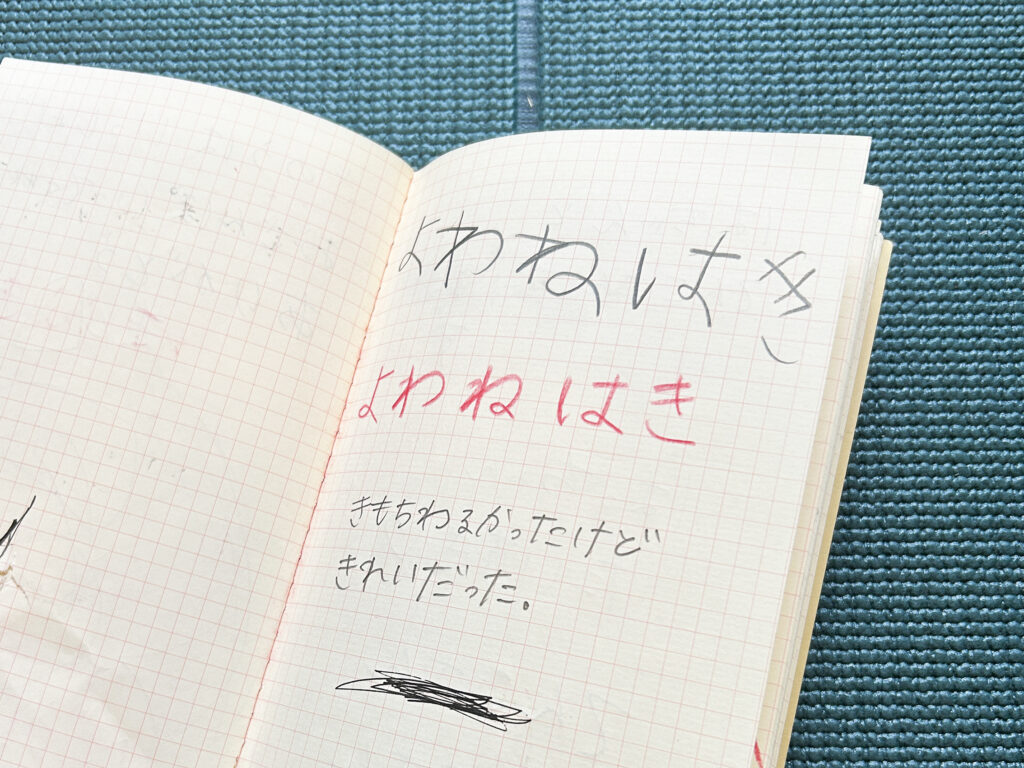 よわねはき
よわねはき
きもちわるかったけど
きれいだった。